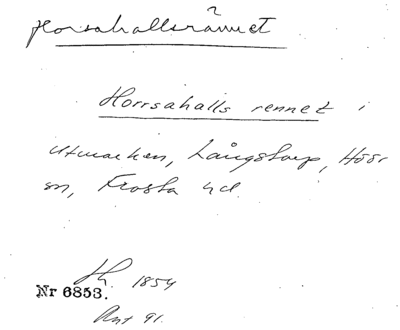 Horsahallsrännet
Horrsahalls rennet i
utmarken, Långstorp, Höör
sn, Frosta hd.
Lh. 1854
Nr 6853.
Ant 91.